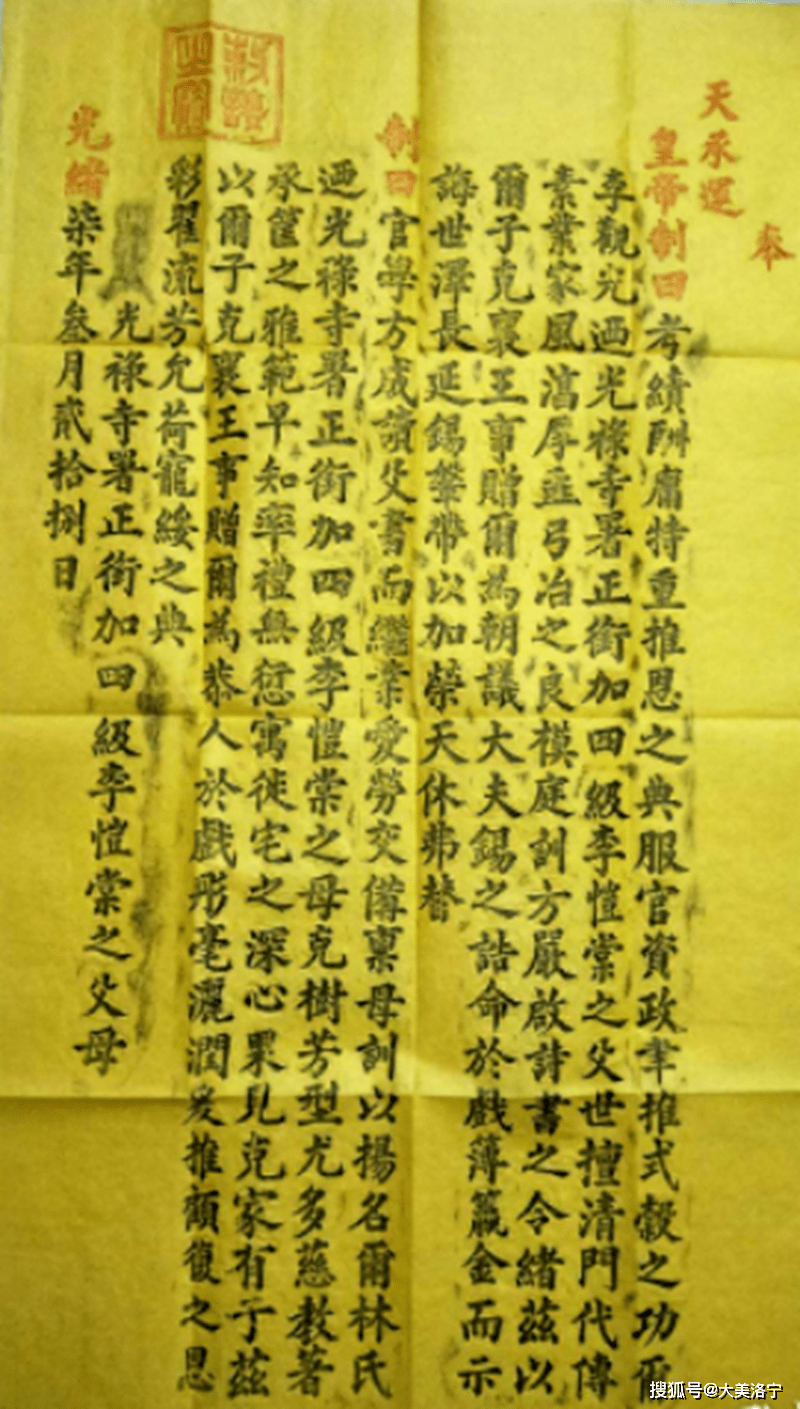 奉
天承運
皇帝制曰考績酬庸特重推恩之典服官資政聿推式穀之功爾
李觀光迺光祿寺署正銜加四級李愷棠之父世擅清門代傳
素業家風湻厚垂弓冶之良模庭訓方嚴啟詩書之令緒茲以
爾子克襄王事贈爾為朝議大夫錫之誥命於戲簿籯金而示
誨世澤長延錫鞶帶以加榮天休弗替
制曰官學方成讀父書而繼業愛勞交備稟母訓以揚名爾林氏
迺光祿寺署正銜加四級李愷棠之母克樹芳型尤多慈教著
承筐之雅範早知率禮無愆寓徙宅之深心果見克家有子茲
以爾子克襄王事贈爾為恭人於戲彤毫灑潤爰推顧復之恩
彩翟流芳允荷寵綏之典
光祿寺署正銜加四級李愷棠之父母
光緒柒年叁月貳拾捌日
搜狐号@大美洛宁